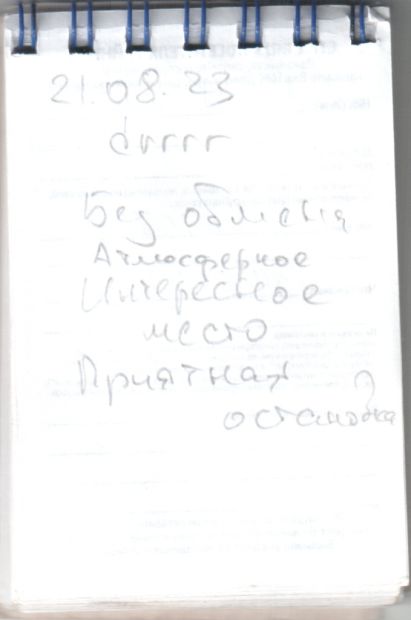 21.08.23
Без обмена
Атмосферное
Интересное
место
Приятная
остановка